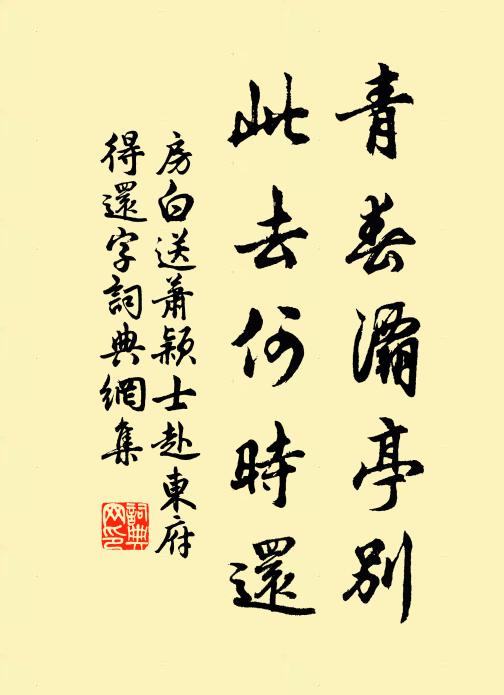 青春灞亭別
此去何時還
房白送蕭潁士赴東府
得還字詞典網集
詞典
网印